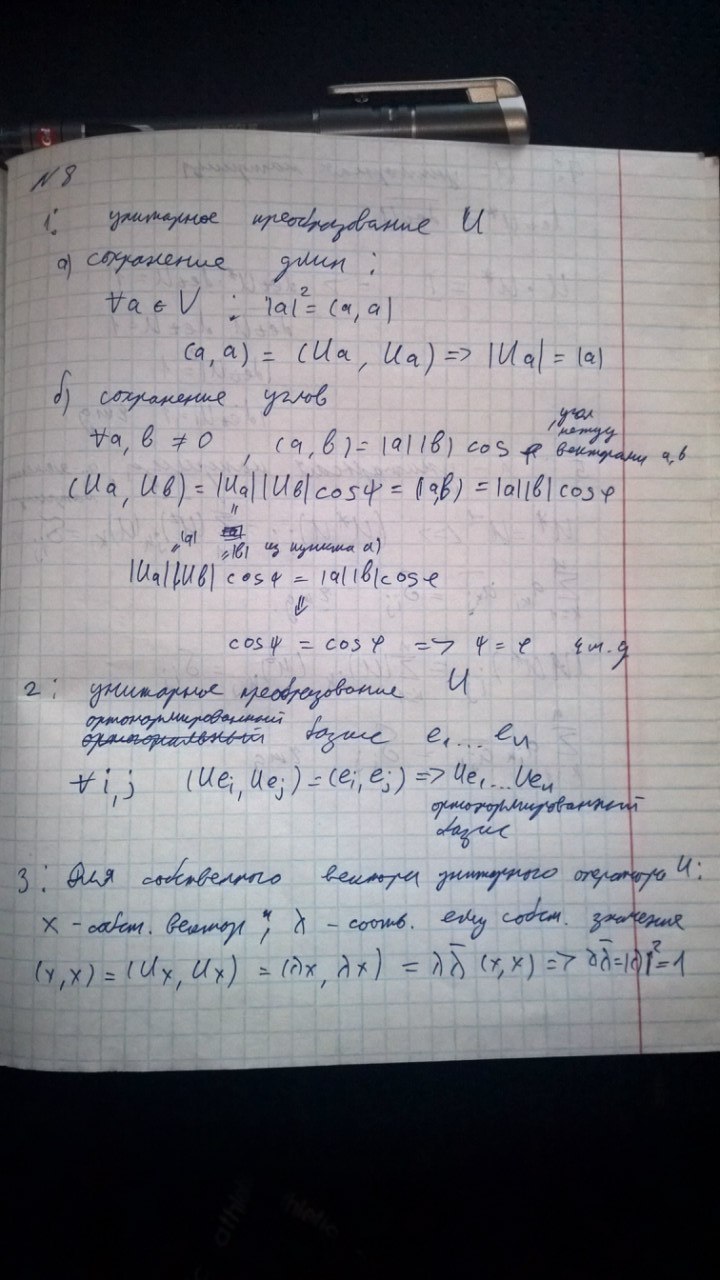 №8
1: унитарное преобразование U
а) сохранение длин:
∀a ∈ V ; |a|² = (a, a)
(a, a) = (Ua, Ua) => |Ua| = |a|
б) сохранение углов
∀a, b ≠ 0 , (a, b) = |a||b| cos φ , угол между векторами a, b
(Ua, Ub) = |Ua||Ub| cosψ = (a,b) = |a||b| cosφ
" |a| " |b| из пункта а)
|Ua||Ub| cosψ = |a||b| cosφ
⇓
cosψ = cosφ => ψ = φ ч.т.д
2: унитарное преобразование U
ортонормированный
ортогональный базис e₁...eₙ
∀ i,j (Ueᵢ, Ueⱼ) = (eᵢ, eⱼ) => Ue₁...Ueₙ
ортонормированный
базис
3: Для собственного вектора унитарного оператора U:
x - собст. вектор, λ - соотв. ему собст. значение
(x, x) = (Ux, Ux) = (λx, λx) = λλ̄ (x, x) => λλ̄ = |λ|² = 1